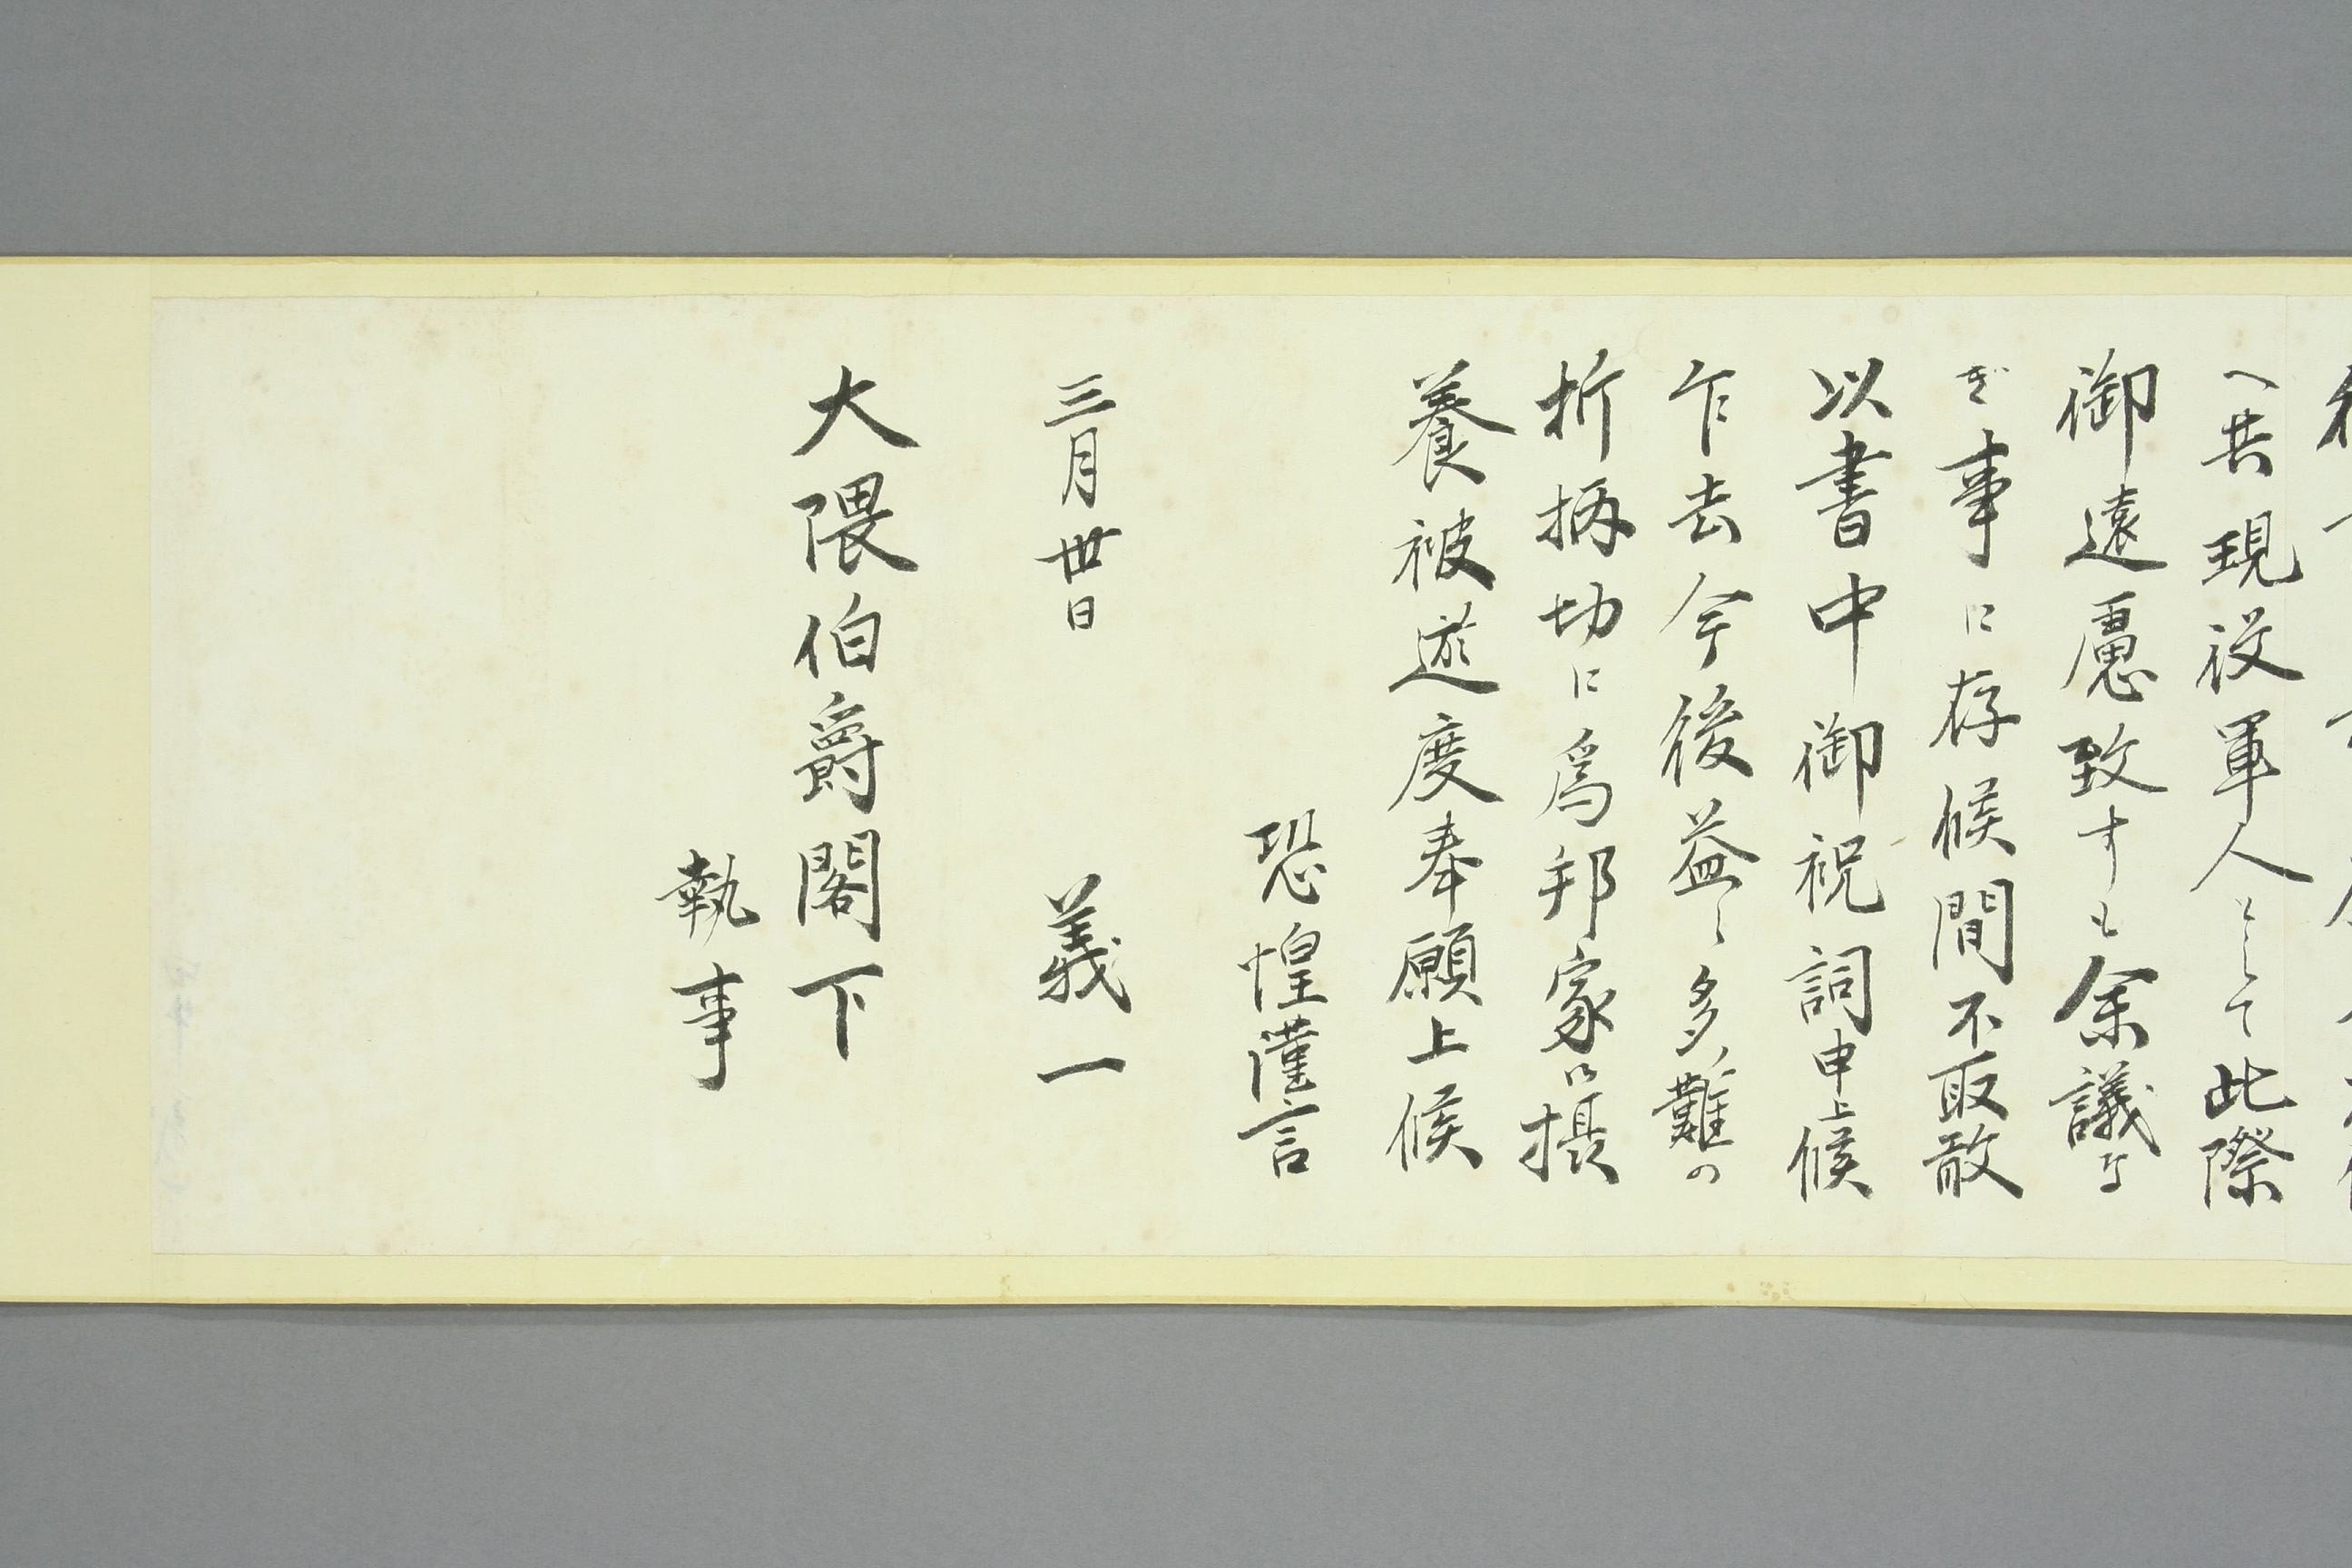 へ共現役軍人として此際
御遠慮致すも余議な
き事に存候間不取敢
以書中御祝詞申上候
乍去今後益〻多難の
折柄切に為邦家御摂
養被遊度奉願上候
恐惶謹言
三月卅日 義一
大隈伯爵閣下
執事